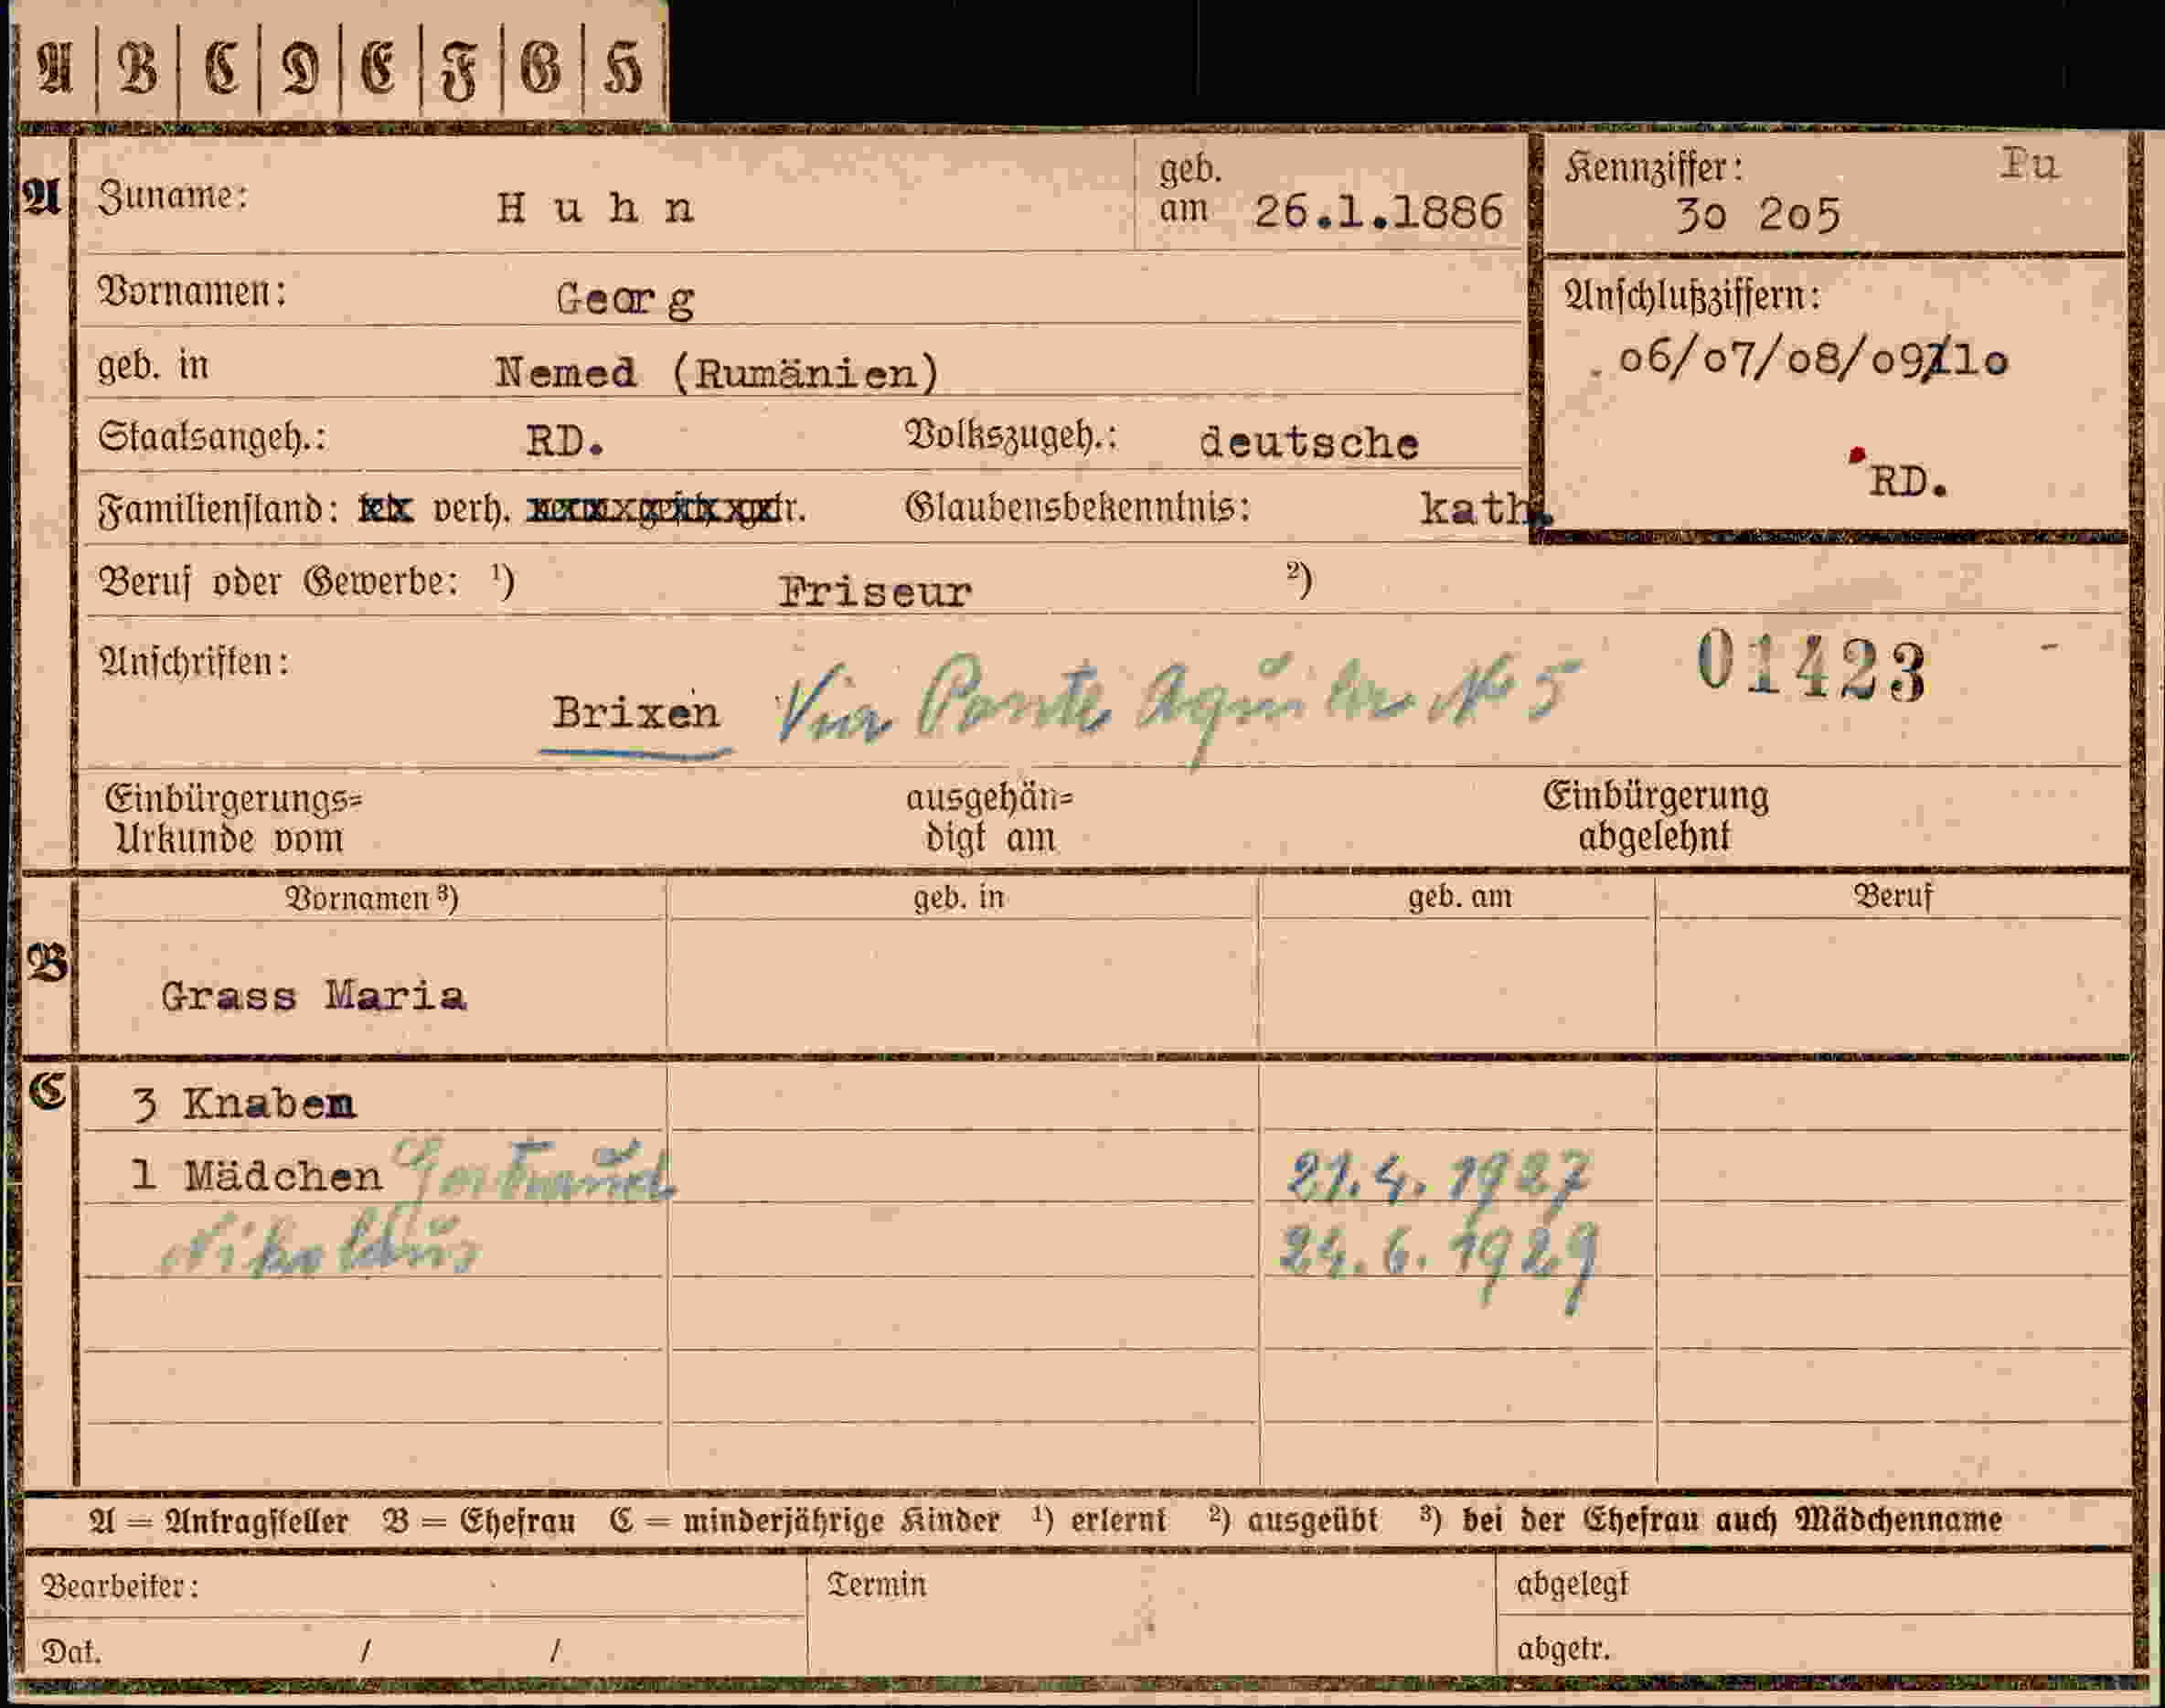 A | B | C | D | E | F | G | H
A Zuname: Huhn geb. am 26.1.1886 Kennziffer: 30 205 Pu
Vornamen: Georg Anschlußziffern:
geb. in Nemed (Rumänien) 06/07/08/09/10
Staatsangeh.: RD. Volkszugeh.: deutsche RD.
Familienstand: verh. Glaubensbekenntnis: kath.
Beruf oder Gewerbe: ¹) Friseur ²)
Anschriften: 01423
Brixen Via Ponte Aquila No 5
Einbürgerungs= ausgehän= Einbürgerung
Urkunde vom digt am abgelehnt
Vornamen ³) geb. in geb. am Beruf
B Grass Maria
C 3 Knaben
1 Mädchen Gertraud 21.4.1927
Nikolaus 24.6.1929
A = Antragsteller B = Ehefrau C = minderjährige Kinder ¹) erlernt ²) ausgeübt ³) bei der Ehefrau auch Mädchenname
Bearbeiter: Termin abgelegt
Dat. / / abgetr.